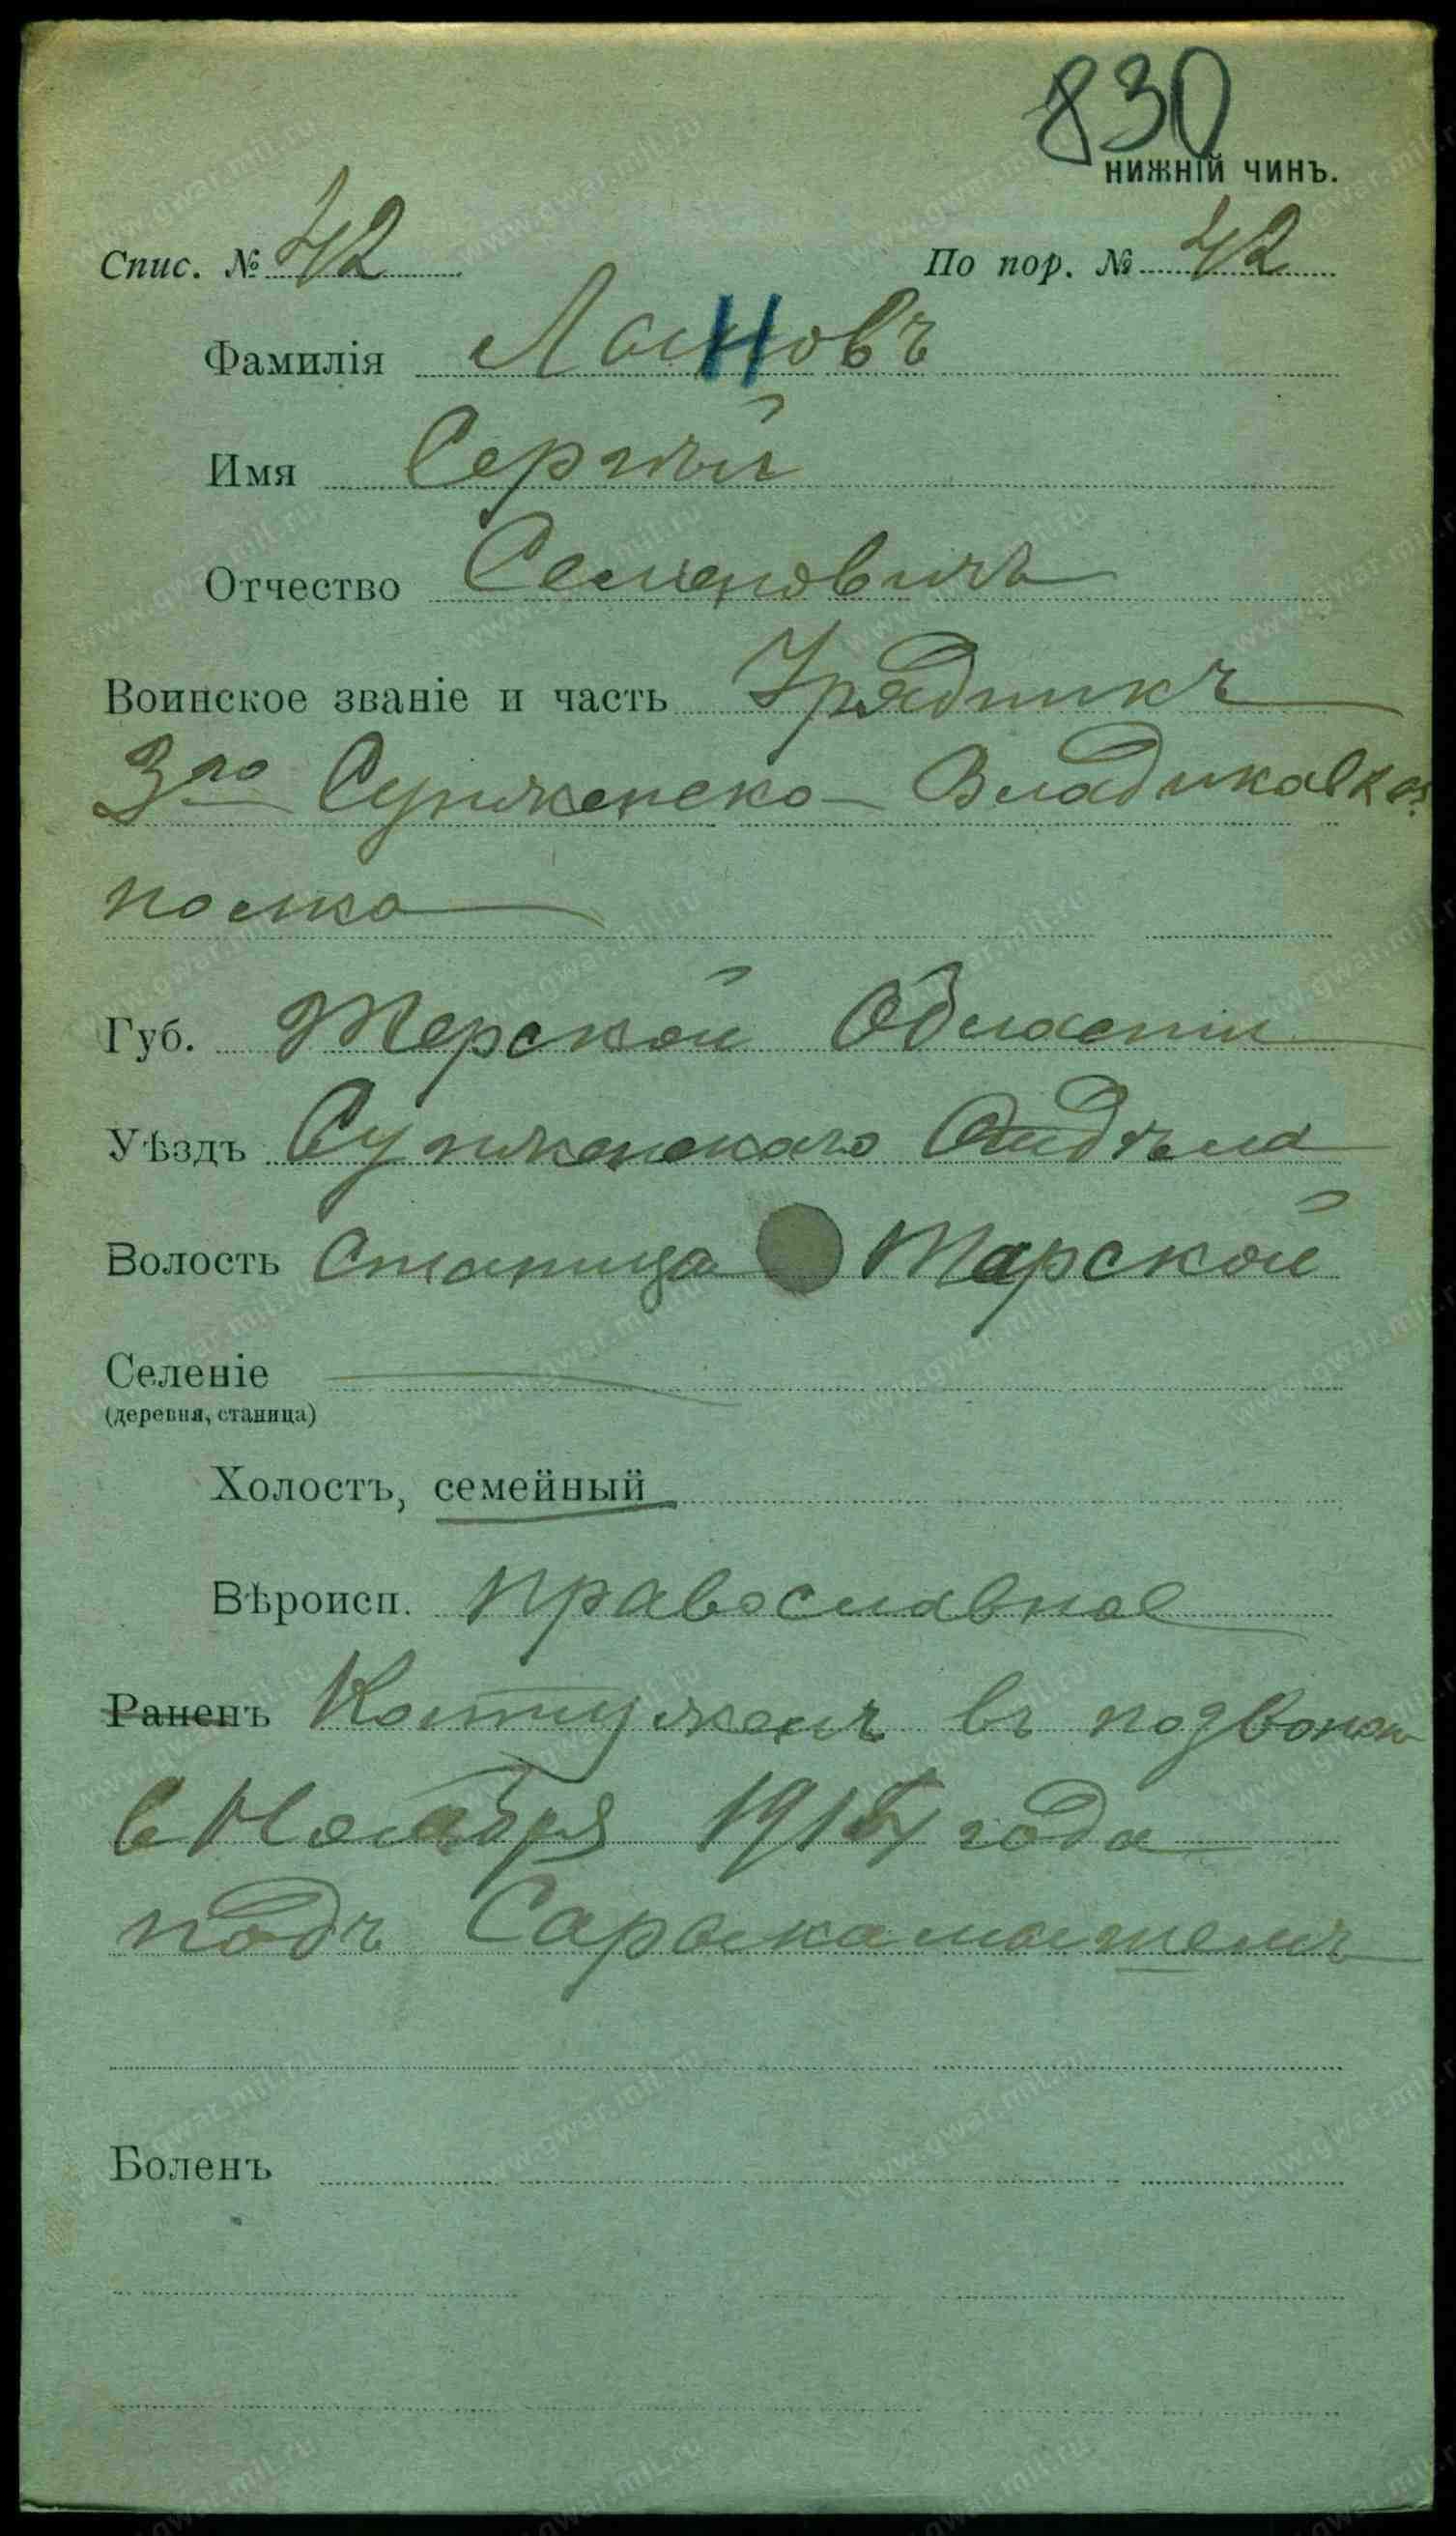 830
НИЖНІЙ ЧИНЪ.
Спис. № 42 По пор. № 42
Фамилія
Имя Сергѣй
Отчество Семеновичъ
Воинское званіе и часть Урядникъ
3го Сунженско-Владикавказ
полка
Губ. Терской Области
Уѣздъ Сунженскаго Отдѣла
Волость Станица Тарской
Селеніе
(деревня, станица)
Холостъ, семейный
Вѣроисп. православное
Раненъ Контуженъ въ
6 Ноября года
подъ Сарыкамышемъ
Боленъ
www.gwar.mil.ru